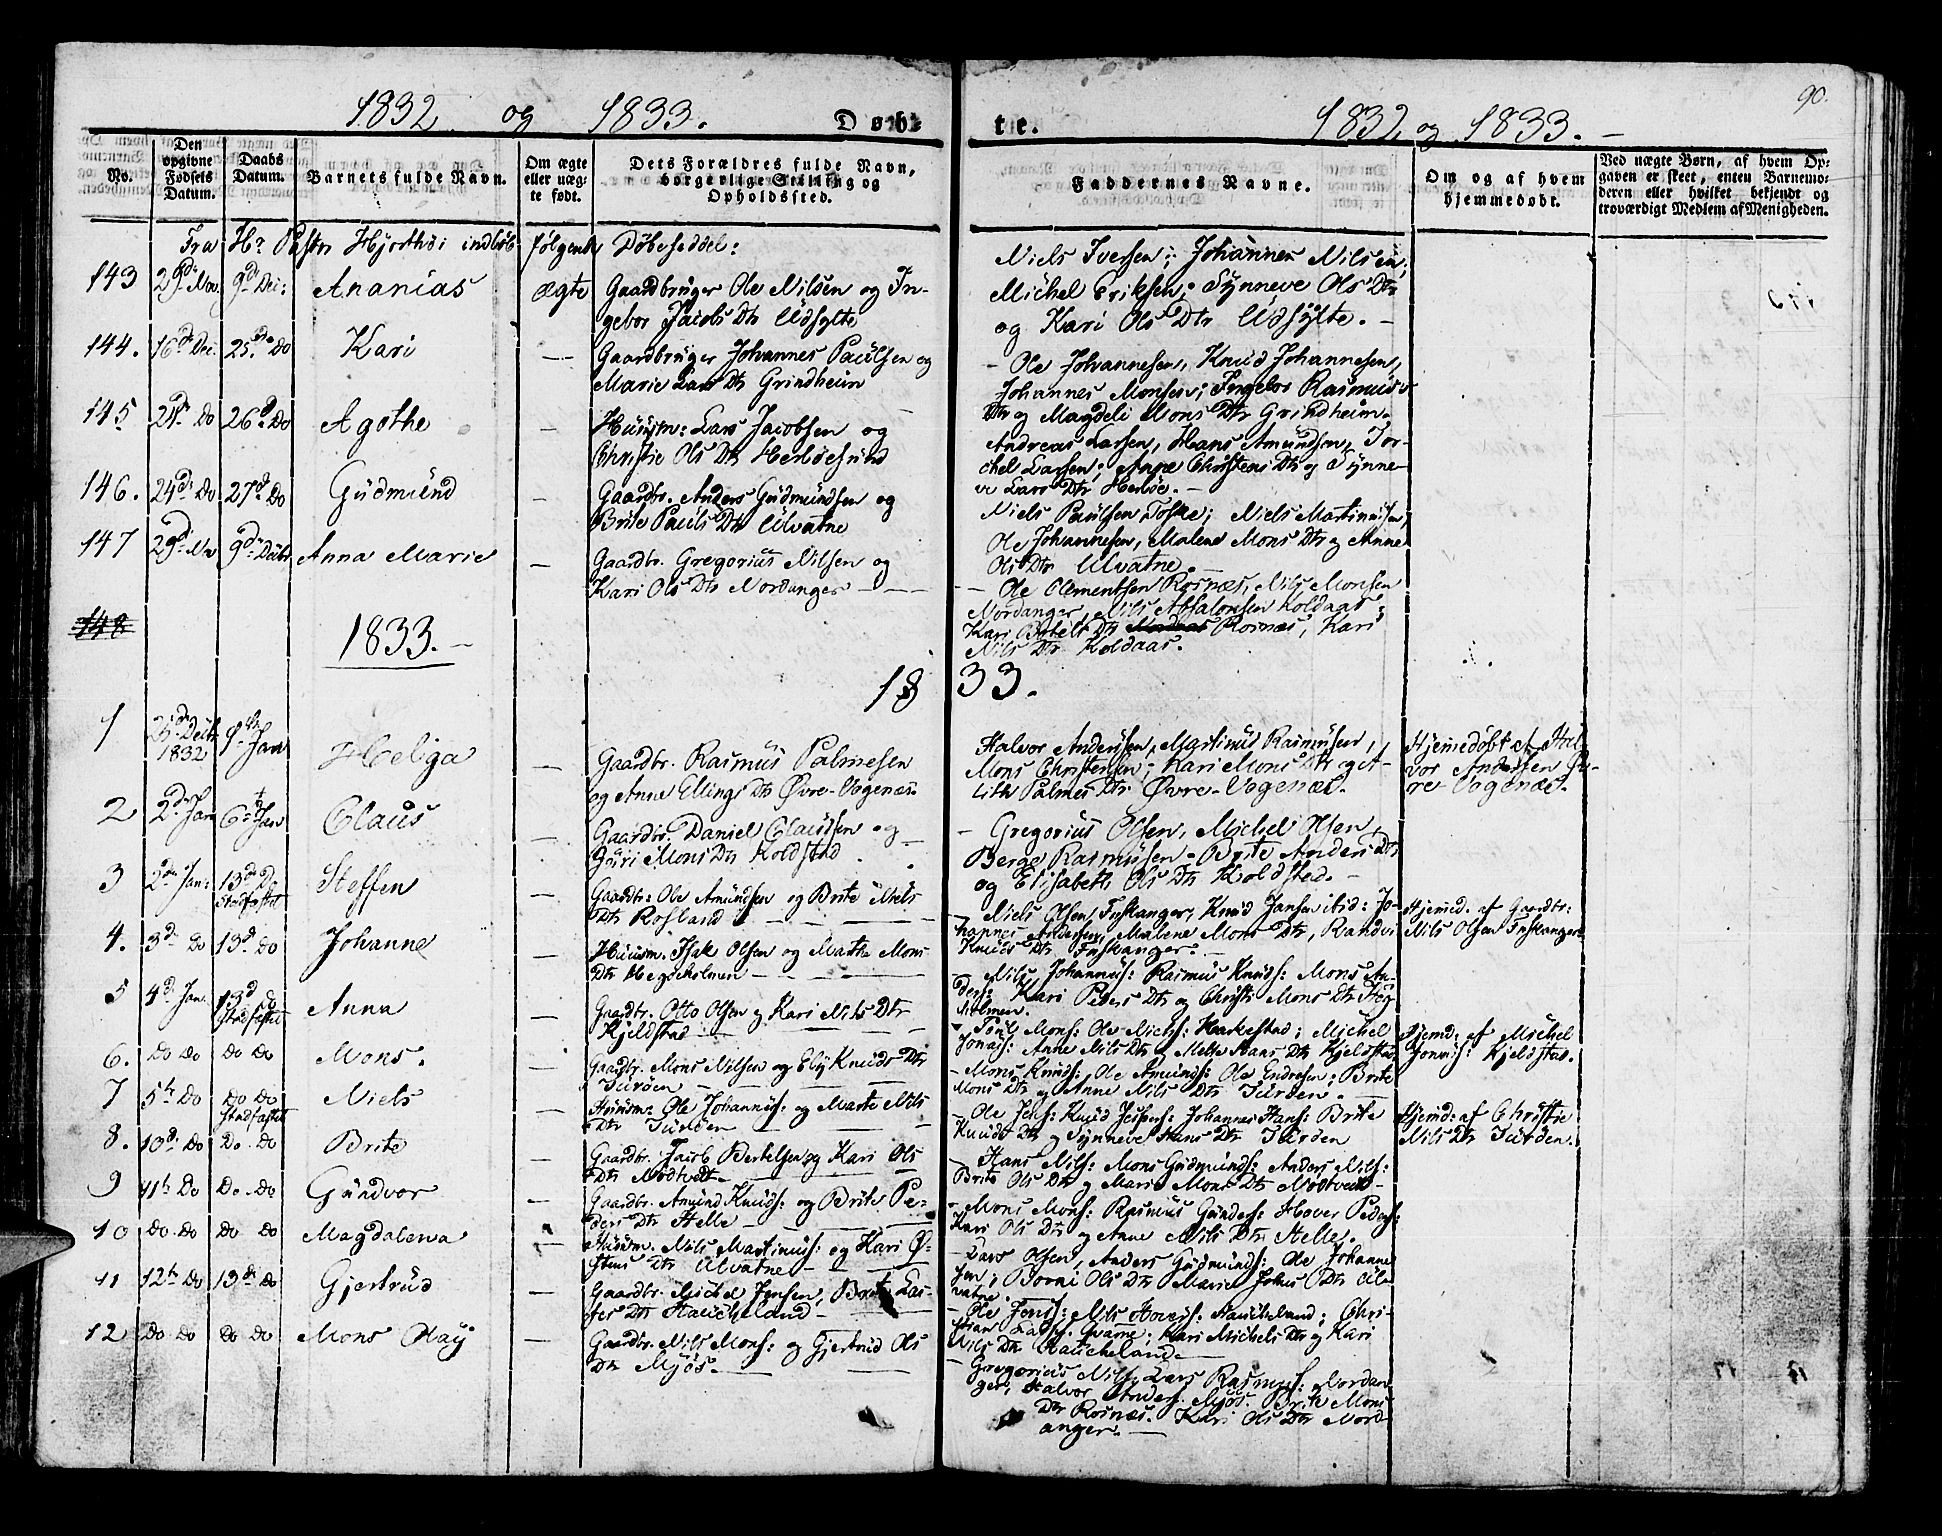 90.
1832 og 1833. Døb-
te. 1832 og 1833. -
No.
Den opgivne Fødsels Datum.
Daabs Datum.
Barnets fulde Navn.
Om ægte eller uægte født.
Dets Forældres fulde Navn, borgerlige Stilling og Opholdssted.
Faddernes Navne.
Om og af hvem hjemmedøbt.
Ved uægte Børn, af hvem Opgaven er skeet, enten Barnemoderen eller hvilket bekjendt og troværdigt Medlem af Menigheden.
Fra Hr Pastor Hjorthöi indløb følgende Døbeseddel:
143 29d Nov. 9d Dec: Ananias ægte Gaardbruger Ole Nilsen og In-
gebor Jacobs Dtr Udsylte
Niels Iversen; Johannes Nilsen,
Michel Eriksen; Synneve Ols Dtr
og Kari Ols Dtr Udsylte. -
144. 16d Dec. 25d Do Kari - Gaardbruger Johannes Paulsen og
Marie Lars Dtr Grindheim
- Ole Johannesen, Knud Johannesen,
Johannes Monsen; Ingebor Rasmus
Dtr og Magdeli Mons Dtr Grindheim.
145 24d Do 26d Do Agothe - Huusm: Lars Jacobsen og
Christie Ols Dtr Herløesund
Andreas Larsen, Hans Amundsen, Tor-
chel Larsen; Anne Christens Dtr og Synne-
ve Lars Dtr Herløe. -
146. 24d Do 27d Do Gudmund - Gaardbr. Anders Gudmundsen og
Brite Pauls Dtr Ulvatne
Niels Paulsen Toske; Niels Martinusen,
Ole Johannesen, Malene Mons Dtr og Anne
Ols Dtr Ulvatne. -
147 29d Nov 9d Decbr Anna Marie - Gaardbr. Gregorius Nilsen og
Kari Ols Dtr Nordanger - - -
- Ole Clementsen Rosnæs, Nils Monsen
Nordanger, Nils Absalonsen Koldaas;
Kari Bertels Dtr Rosnæs, Kari
Nils Dtr Koldaas.
148
1833. -
18 33.
1 25d Decbr 1832 1ste Jan Heliga - Gaardbr. Rasmus Palmesen
og Anne Ellings Dtr Øvre-Vogenæs.
Halvor Andersen, Martinus Rasmusen,
Mons Christensen; Kari Mons Dtr og A-
lith Palmes Dtr Øvre-Vogenæs.
Hjemedøbt af Hal-
vor Andersen Øv-
re Vogenæs.
2 2d Jan 6te Jan Claus - Gaardbr. Daniel Clausen og
Guri Mons Dtr Koldstad
- Gregorius Olsen, Michel Olsen,
Berge Rasmusen - Brite Anders Dtr
og Elisabeth Ols Dtr Koldsted. -
3 2den Jan: 13d Do Stadfæstet Steffen - Gaardbr: Ole Amundsen og Brite Niels
Dtr Rosland
- Niels Olsen Tuskanger, Knud Jansen ibid: Jo-
hannes Andersen, Malene Mons Dtr, Randvi
Knuds Dtr Tuskanger. -
Hjemed. af Gaardbr:
Nils Olsen Tuskanger
4. 3d Do 13d Do Johanne - Huusm. Isak Olsen og Marthe Mons
Dtr Hegøeholmen -
- Nils Johannes: Rasmus Knuds: Mons An-
ders: Kari Peders Dtr og Christi Mons Dtr Heg-
holmen.
5 4d Jan. 13d Do Stadfæstet Anna - Gaardbr. Otto Olsen og Kari Nils Dtr
Kjeldstad -
Mons: Ole Niels: Harkestad; Michel
Jonas: Anne Nils Dtr og Mette Hans Dtr Kjeldstad
Hjemd: af Michel
Jonas: Kjeldstad.
6. Do Do Do Do Mons. - Gaardbr. Mons Nilsen og Eli Knuds Dtr
Turøen -
- Mons Knuds: Ole Amunds: Ole Endresen; Brite
Mons Dtr og Anne Nils Dtr Turøen. -
7 5te Do Do Do Stadfæstet Niels - Huusm: Ole Johannes: og Marte Nils
Dtr Turøen
- Ole Jens: Knud Jespers: Johannes Hans: Brite
Knuds Dtr og Synneve Hans Dtr Turøen
Hjemd: af Christie
Nils Dtr Turøen.
8. 10d Do Do Do Brite - Gaardbr. Jacob Bertelsen og Kari Ols
Dtr Nødtvedt -
- Hans Nils: Mons Gudmunds: Anders Nils:
Brite Ols Dtr og Marie Mons Dtr Nødtvedt -
9 11te Do Do Do Gundvor - Gaardbr. Amund Knuds: og Brite Pe-
ders Dtr Helle -
- Mons Mons: Rasmus Gunders: Haver Peders:
Kari Ols Dtr og Anne Nils Dtr Helle.
10 Do Do Do Do Magdalena - Huusm. Nils Martinus: og Kari Ø-
stens Dtr Ulvatne -
- Lars Olsen, Anders Gudmunds: Ole Johanne
sen; Borni Ols Dtr Marie Johns Dtr Ul-
vatne.
11 12te Do 13d Do Gjertrud - Gaardbr. Michel Jensen, Brite Las-
ses Dtr Haucheland -
- Ole Jens: Nils Haavs: Haucheland; Chri-
stian Lasse: Qvarne; Kari Michels Dtr og Kari
Nils Dtr Haucheland -
12 Do Do Do Do Mons Olay - Gaardbr. Nils Mons: og Gjertrud Ols
Dtr Mjøs. -
- Gregorius Nils: Lars Rasmus: Nordan-
ger, Halvor Anders: Mjøs. Brite Mons
Dtr Rosnæs. Kari Ols Dtr Nord-
anger. -